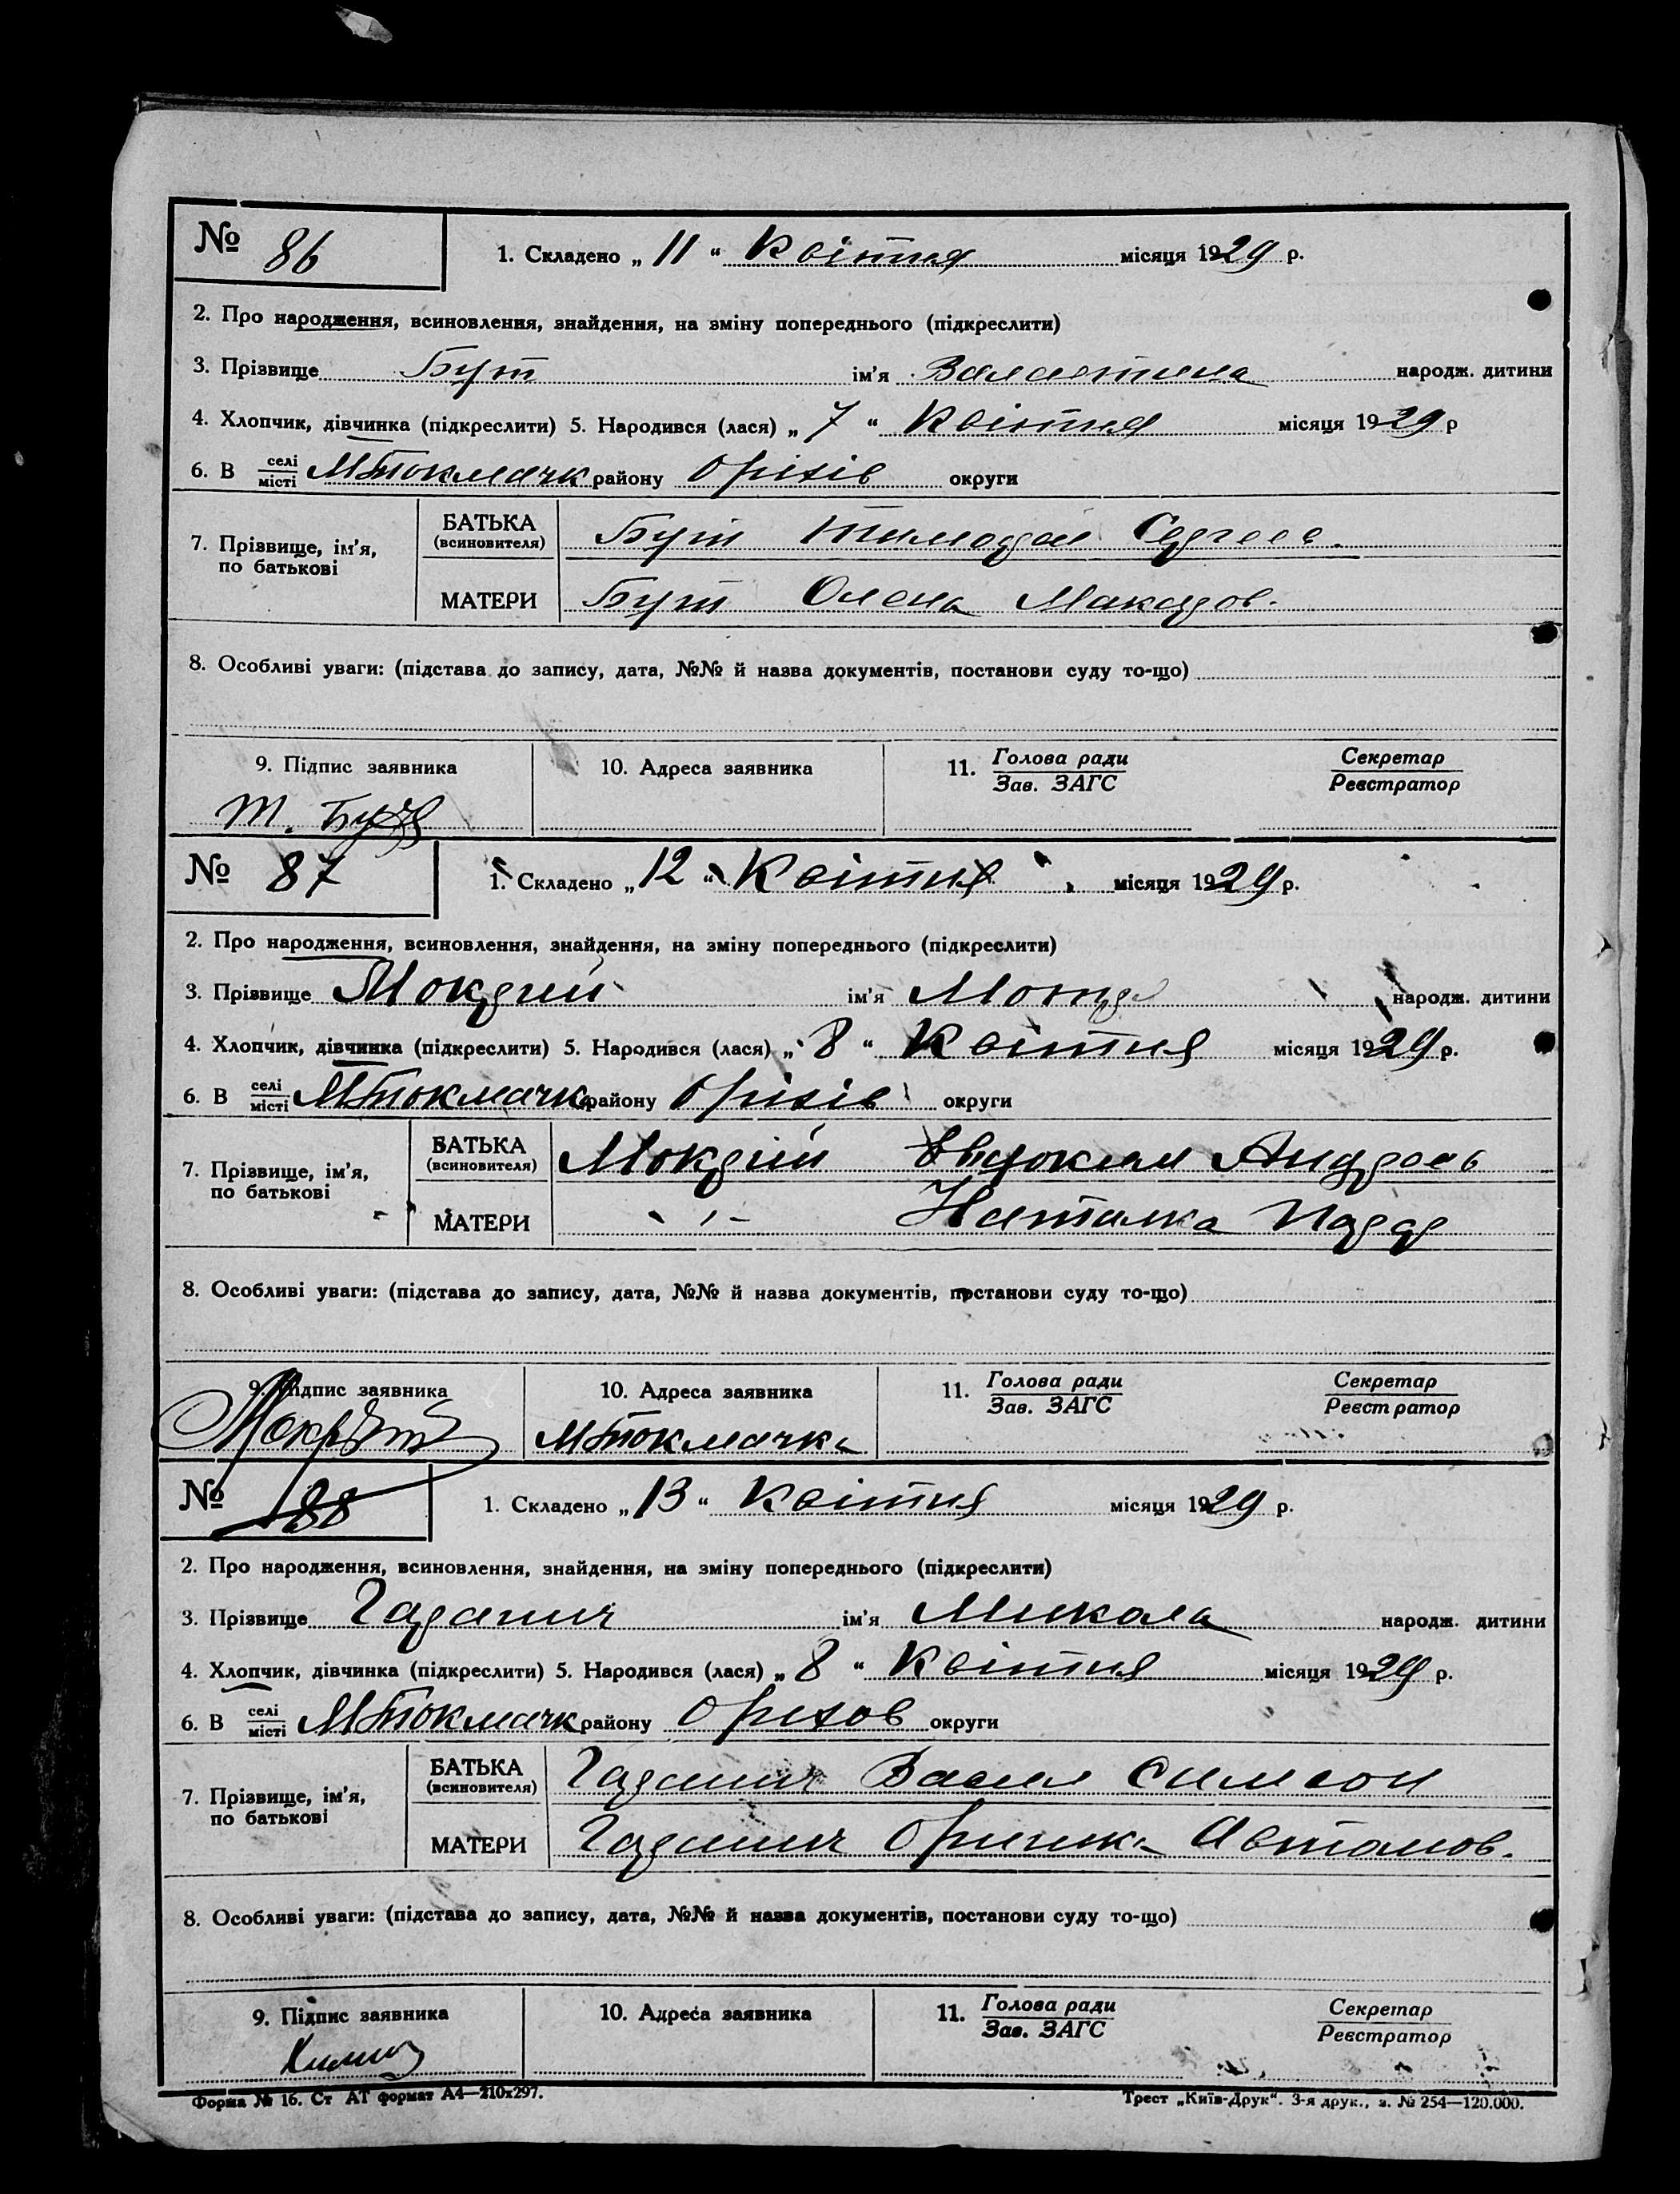 № 86 1. Складено „ 11 “ Квітня місяця 1929 р.
2. Про народження, всиновлення, знайдення, на зміну попереднього (підкреслити)
3. Прізвище Бут ім'я Валентина народж. дитини
4. Хлопчик, дівчинка (підкреслити) 5. Народився (лася) „ 7 “ Квітня місяця 1929 р
6. В селі/місті МТокмачк району Оріхів округи
7. Прізвище, ім'я, по батькові
БАТЬКА (всиновителя) Бут Тимофей Сергеев.
МАТЕРИ Бут Олена Макаров.
8. Особливі уваги: (підстава до запису, дата, №№ й назва документів, постанови суду то-що)
9. Підпис заявника 10. Адреса заявника 11. Голова ради/Зав. ЗАГС Секретар/Реєстратор
Т. Бут
№ 87 1. Складено „ 12 “ Квітня місяця 1929 р.
2. Про народження, всиновлення, знайдення, на зміну попереднього (підкреслити)
3. Прізвище Мокрий ім'я Мотря народж. дитини
4. Хлопчик, дівчинка (підкреслити) 5. Народився (лася) „ 8 “ Квітня місяця 1929 р.
6. В селі/місті МТокмачка району Оріхів округи
7. Прізвище, ім'я, по батькові
БАТЬКА (всиновителя) Мокрій Евдоким Андреев
МАТЕРИ -"- Наталка
8. Особливі уваги: (підстава до запису, дата, №№ й назва документів, постанови суду то-що)
9. Підпис заявника 10. Адреса заявника 11. Голова ради/Зав. ЗАГС Секретар/Реєстратор
МТокмачка
№ 88 1. Складено „ 13 “ Квітня місяця 1929 р.
2. Про народження, всиновлення, знайдення, на зміну попереднього (підкреслити)
3. Прізвище Гаранич ім'я Микола народж. дитини
4. Хлопчик, дівчинка (підкреслити) 5. Народився (лася) „ 8 “ Квітня місяця 1929 р.
6. В селі/місті МТокмачк району Орехов округи
7. Прізвище, ім'я, по батькові
БАТЬКА (всиновителя) Гаранич Васил Симеон
МАТЕРИ Гаранич Оринка Автомов.
8. Особливі уваги: (підстава до запису, дата, №№ й назва документів, постанови суду то-що)
9. Підпис заявника 10. Адреса заявника 11. Голова ради/Зав. ЗАГС Секретар/Реєстратор
Форма № 16. Ст АТ формат А4—210х297. Трест „Київ-Друк“. 3-я друк., з. № 254—120.000.